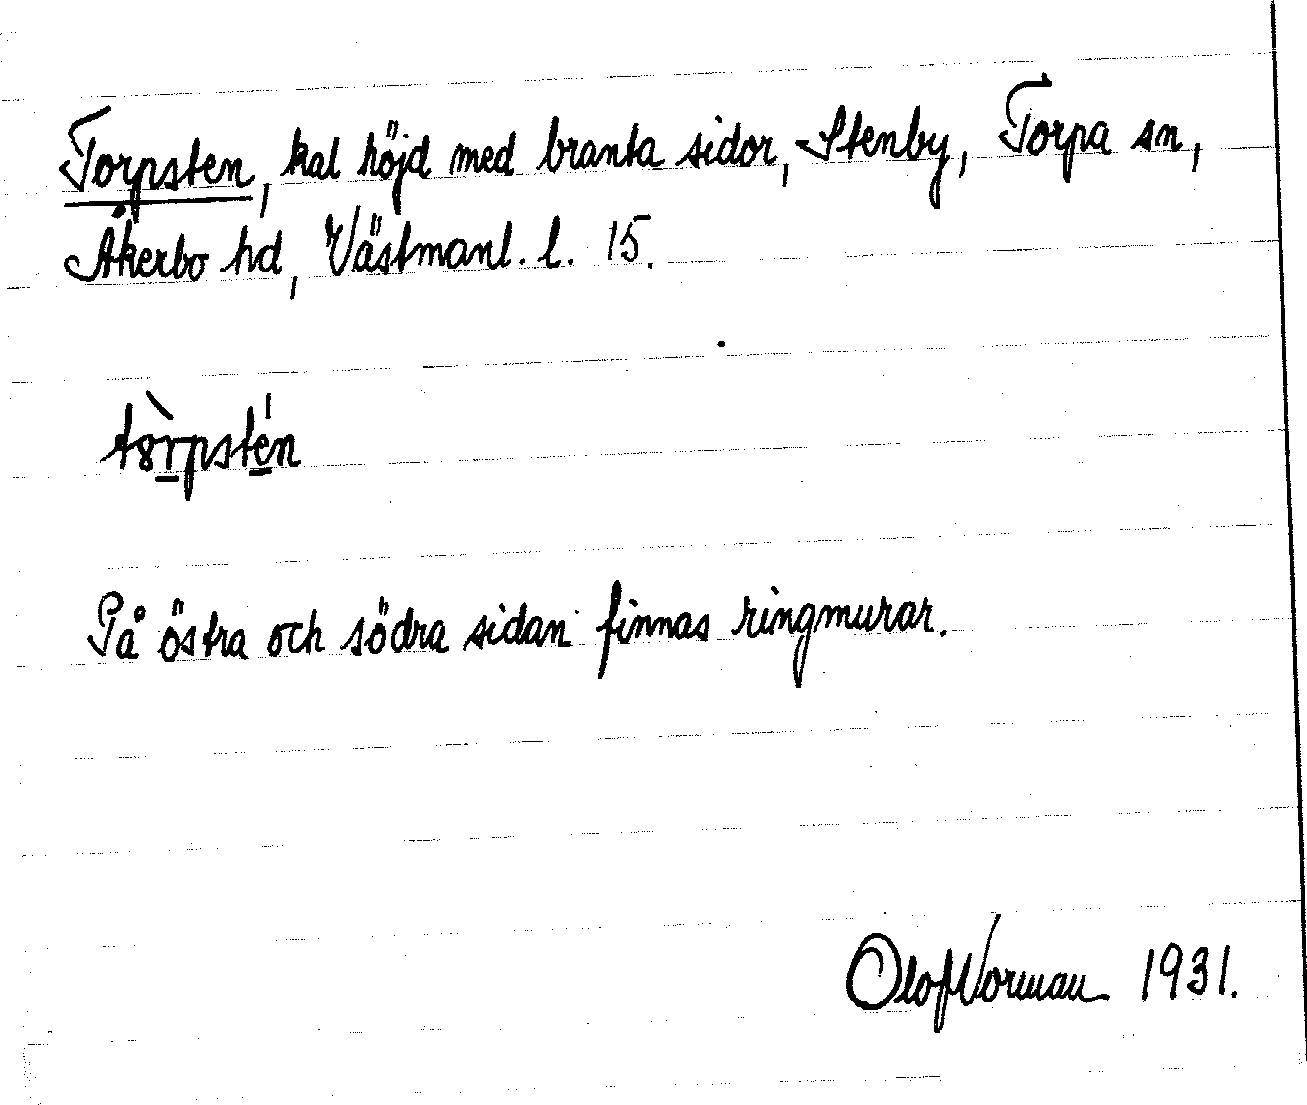 Torpsten, kal höjd med branta sidor, Stenby, Torpa sn,
Åkerbo hd, Västmanl. l. 15.
tòrpstén
På östra och södra sidan finnas ringmurar.
Olof Norman 1931.